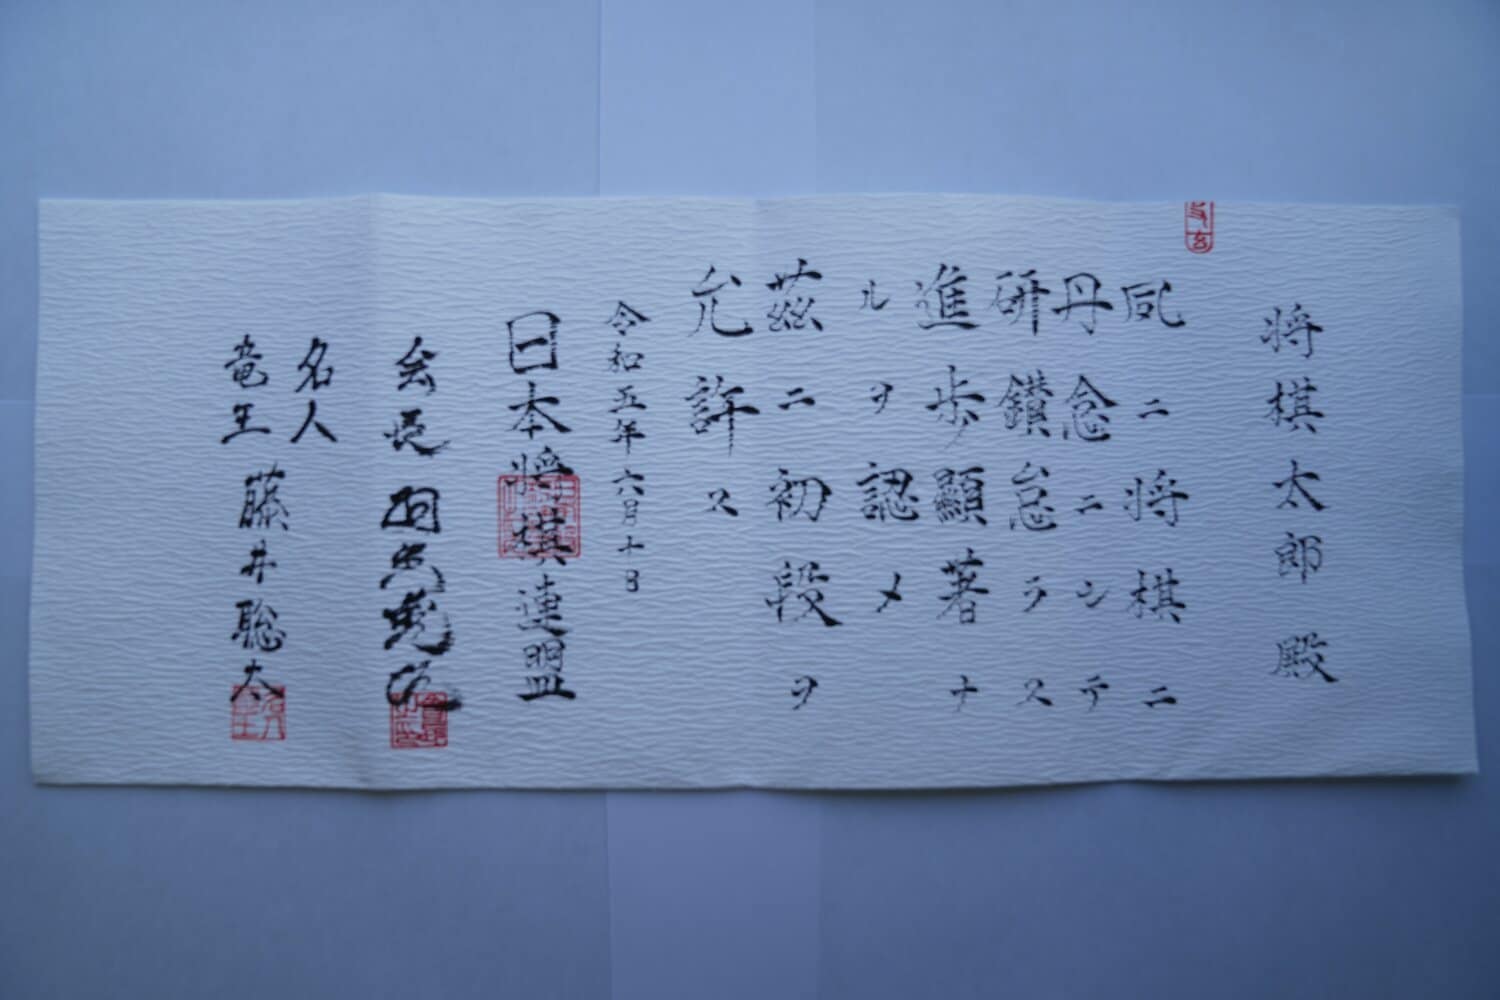 将棋太郎殿
夙ニ将棋ニ
丹念ニシテ
研鑽怠ラス
進歩顯著ナ
ルヲ認メ
茲ニ初段ヲ
允許ス
令和五年六月十日
日本将棋連盟
会長 羽生善治
名人
竜王 藤井聡太